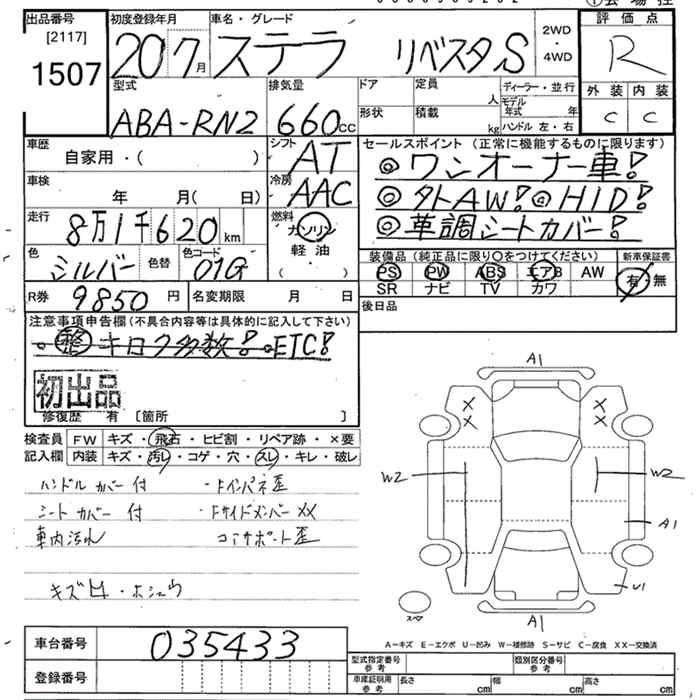 出品番号
[2117]
1507
初度登録年月
20 7月
車名・グレード
ステラ リベスタS
2WD
・
4WD
評価点
R
外装 内装
C C
型式
ABA-RN2
排気量
660cc
ドア
定員
人
ディーラー・並行
モデル年式 年
形状
積載
kg
ハンドル 左・右
車歴
自家用・( )
シフト
AT
セールスポイント (正常に機能するものに限ります)
◎ワンオーナー車!
◎外AW!◎HID!
◎革調シートカバー!
車検
年 月( 日)
冷房
AAC
走行
8万1千620km
燃料
ガソリン
軽油
( )
色
シルバー
色替
色コード
01G
装備品 (純正品に限り○をつけてください)
PS PW ABS エアB AW
SR ナビ TV カワ
新車保証書
有 無
R券
9850円
名変期限 月 日
後日品
注意事項申告欄 (不具合内容等は具体的に記入して下さい)
○整キロク多数!○ETC!
初出品
修復歴 有 [箇所 ]
検査員
記入欄
FW キズ・飛石・ヒビ割・リペア跡・×要
内装 キズ・汚レ・コゲ・穴・スレ・キレ・破レ
ハンドルカバー付 ・Fインパネ歪
シートカバー付 ・FサイドメンバーXX
車内汚れ コアサポート歪
A1
X X
X X
W2
W2
A1
U1
スペア
A1
車台番号
035433
登録番号
A-キズ E-エクボ U-凹み W-補修跡 S-サビ C-腐食 XX-交換済
型式指定番号
参考
類別区分番号
参考
車庫証明用
参考
長さ cm
幅 cm
高さ cm